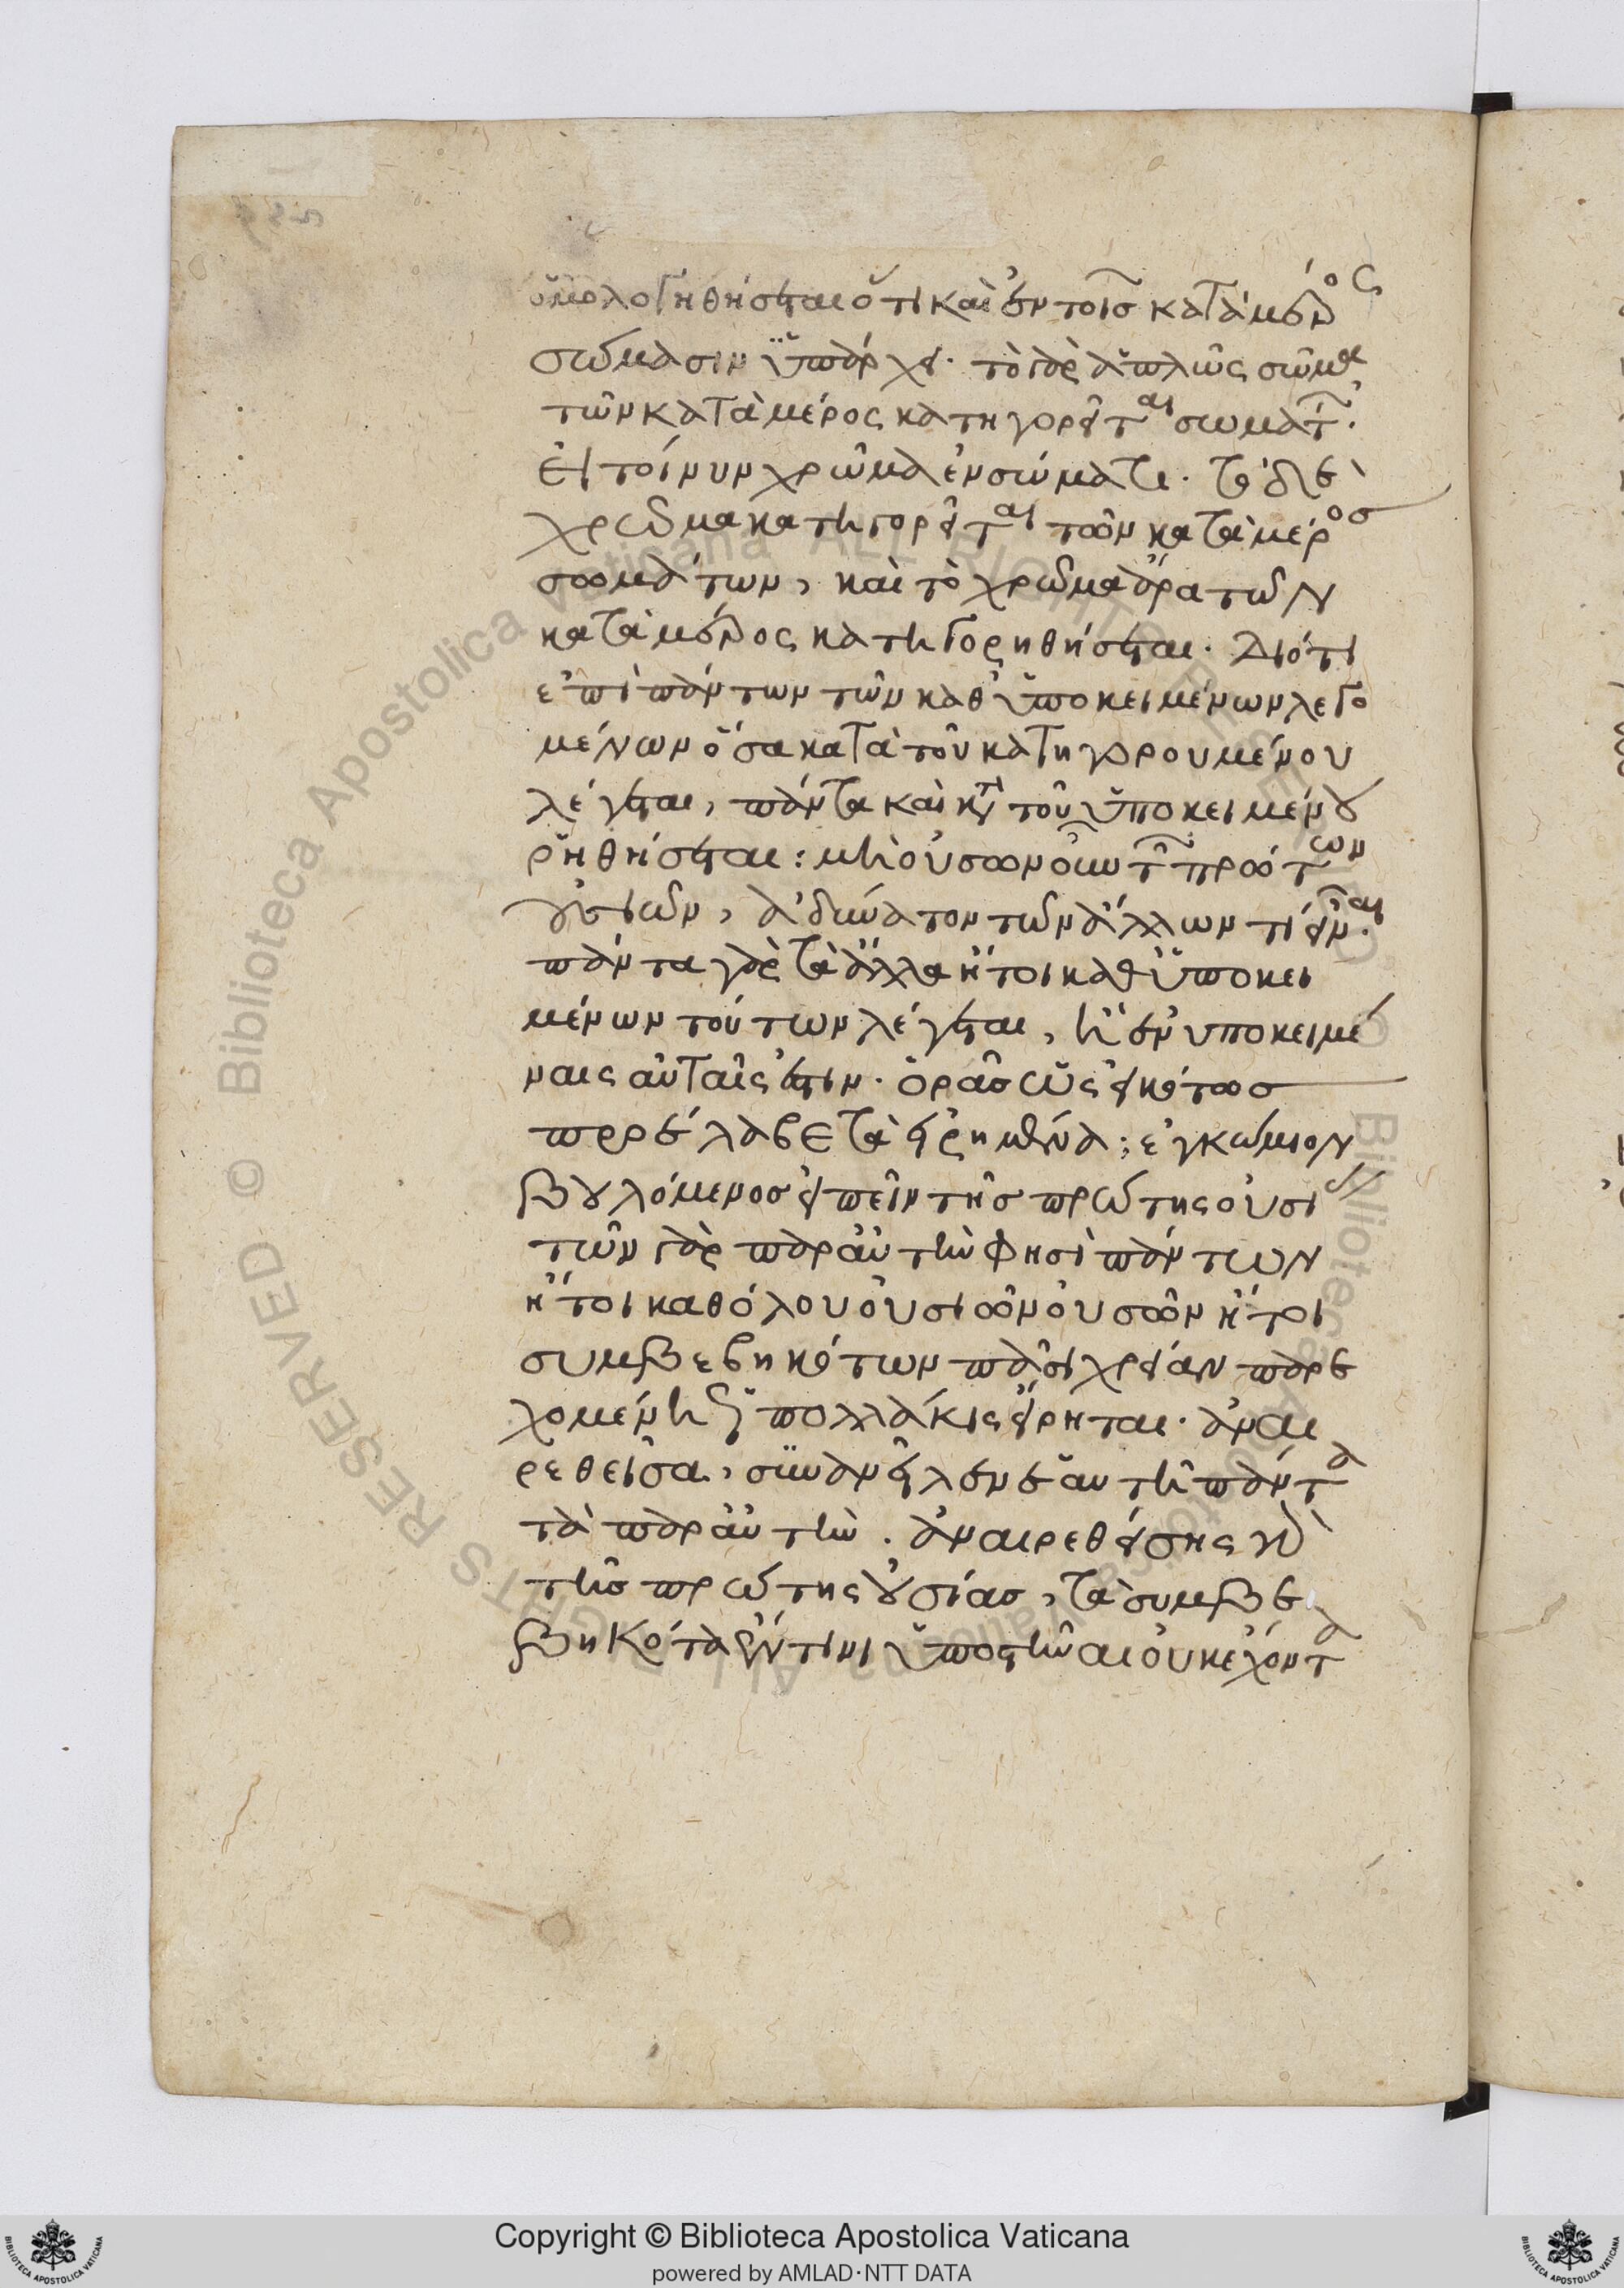 ὁμολογηθήσεται ὅτι καὶ ἐν τοῖσ κατὰ μέρος
σώμασιν ϋπάρχει· τὸ γὰρ ἁπλῶς σῶμα
τῶν κατὰ μέρος κατηγορεῖται σωμάτ·
εἰ τοίνυν χρῶμα ἐν σώματι· τὸ δὲ
χρῶμα κατηγορεῖται τῶν κατὰ μέροσ
σωμάτων, καὶ τὸ χρῶμα ἄρα τῶν
κατὰ μέρος κατηγορηθήσεται· Διότι
ἐπὶ πάντων τῶν καθ ὑποκειμένων λεγο
μένων ὅσα κατὰ τοῦ κατηγορουμένου
λέγεται, πάντα καὶ κατὰ τοῦ ὑποκειμένου
ῥηθήσεται: μὴ οὐσῶν οὖν τῶν πρώτων
οὐσιῶν, ἀδύνατον τῶν ἄλλων τί εἶναι·
πάντα γὰρ τὰ ἄλλα ἤτοι καθ ὑποκει
μένων τούτων λέγεται, ἢ ἐν υποκειμέ
ναις αὐταῖς ἐστιν· ὁρᾶσ ὡς εἰκότωσ
προσέλαβε τὰ εἰρημένα; ἐγκώμιον
βουλόμενοσ εἰπεῖν τῆσ πρώτης οὐσι
τῶν γὰρ παρ αὐτὴν φησὶ πάντων
ἤτοι καθόλου οὐσιῶν οὐσῶν ἤτοι
συμβεβηκότων πᾶσι χρείαν παρε
χομένη ὡς πολλάκις εἴρηται· ἀναι
ρεθεῖσα, συνανεῖλεν ἐαυτῆ πάντα
τὰ παρ αὐτὴν. ἀναιρεθείσης γὰρ
τῆσ πρώτης οὐσίασ, τὰ συμβε
βηκότα ἔν τινι ὑποστῆναι οὐκ ἔχοντα
Copyright © Biblioteca Apostolica Vaticana
powered by AMLAD·NTT DATA